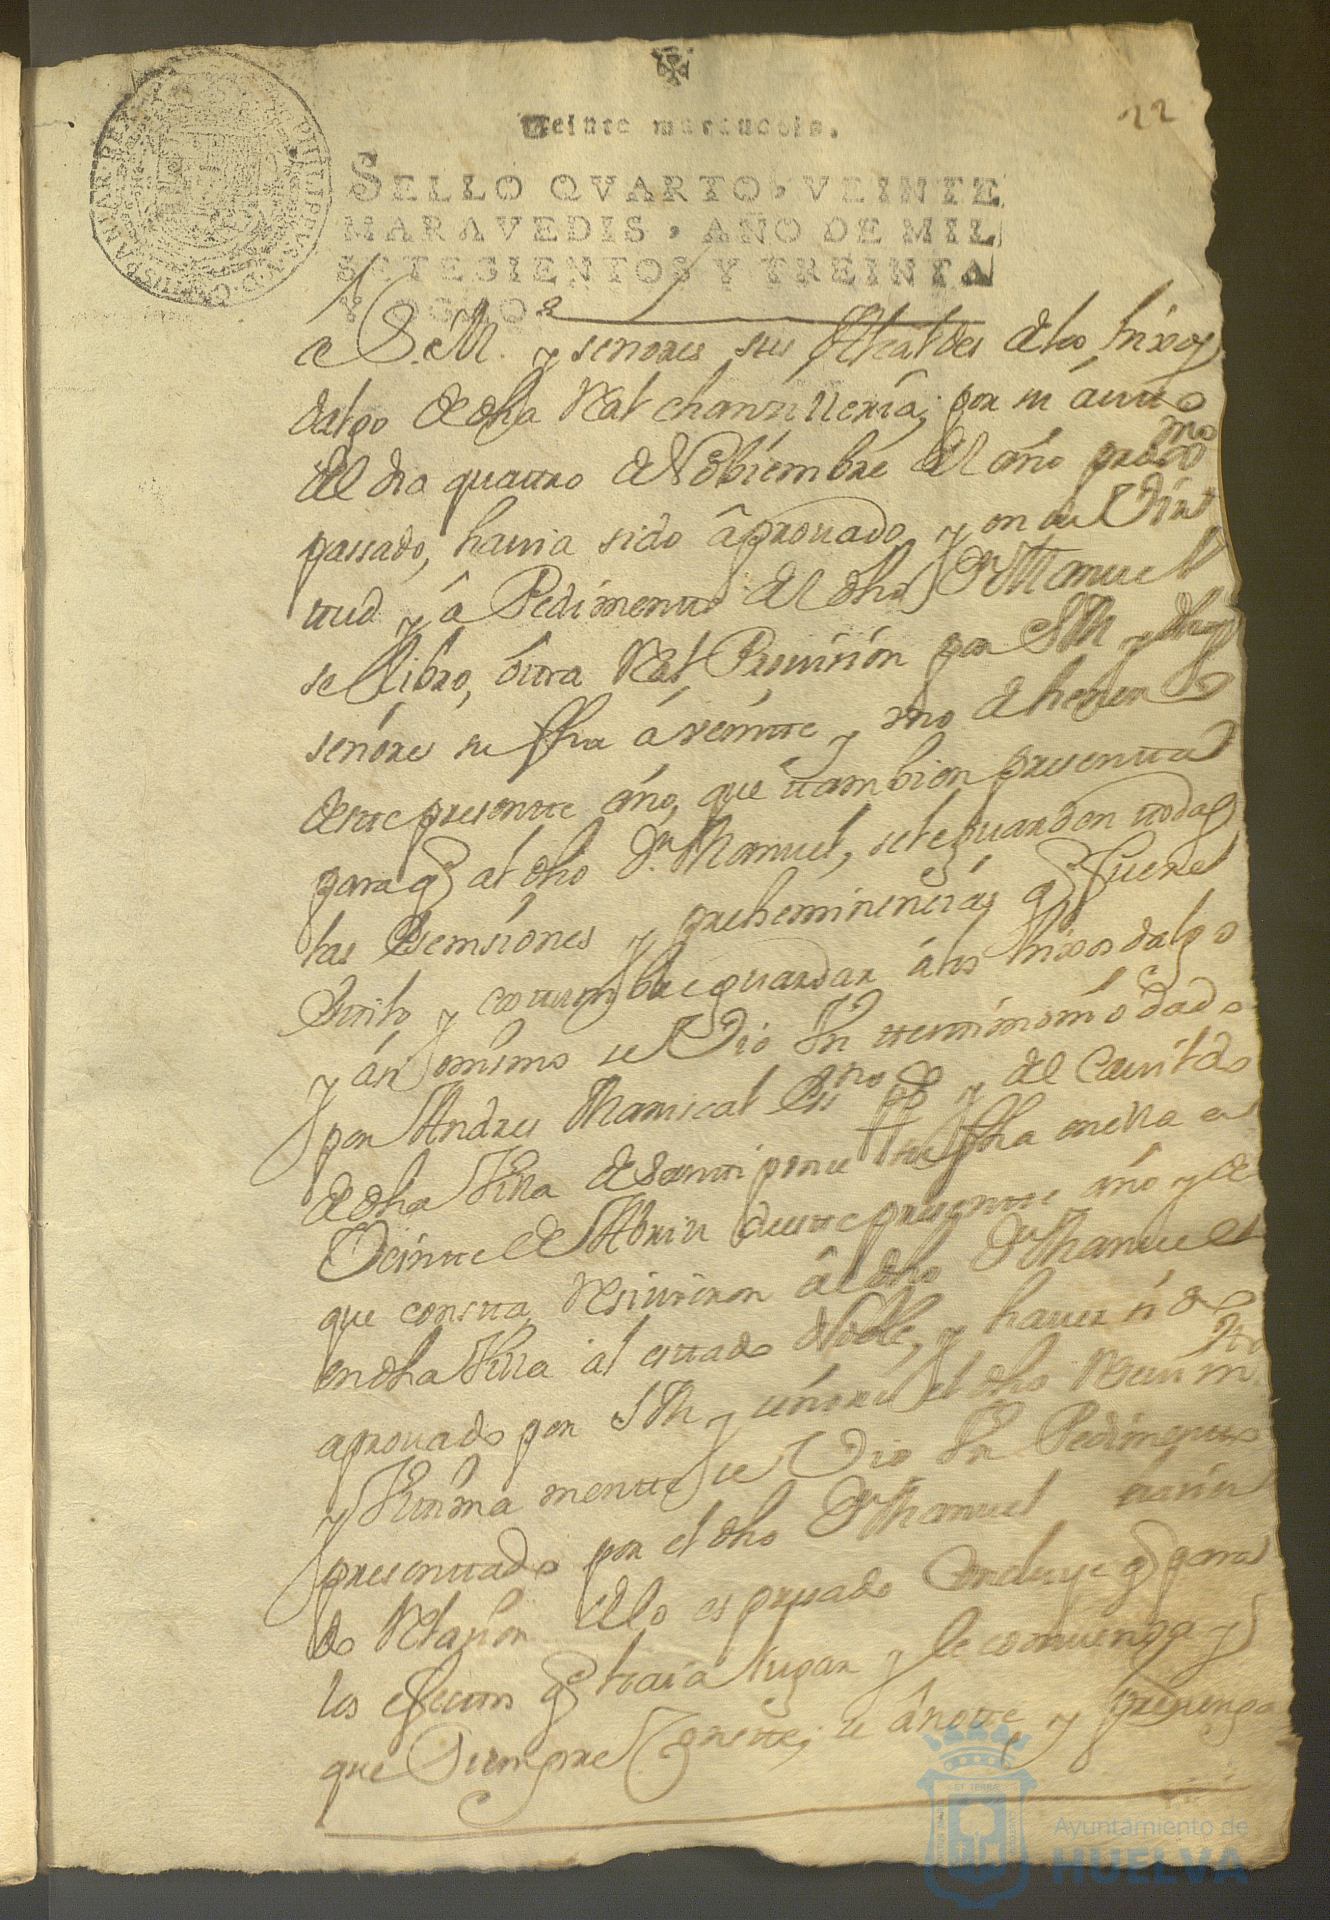 22
Veinte marauedis.
SELLO QVARTO, VEINTE
MARAVEDIS, AÑO DE MIL
SETECIENTOS Y TREINTA
Y OCHO.
PHILIPPUS V D G HISPANIAR REX
a S. M. y señores sus Alcaldes de los hixos
dalgo de dha Real chanzilleria, por su auto
del dia quattro de Nobiembre del año proxmo
passado, havia sido aprouado y en su Vir
tud y a Pedimento del dho Dn Manuel
se libro, otra Real Prouision por S M y dhos
señores su fha a veintte y uno de henero
deste presentte año, que ttambien presentta
para q al dho Dn Manuel, se le guarden ttodas
las Esemsiones y preheminencias q fuere
Estilo y costumbre guardar a los hixos dalgo
y assi mismo se Vio Un testimonio dado
por Andres Mariscal Essno pco y del Cauildo
de dha Villa de Santiponze su fha en ella en
Veintte de Abril deste presentte año y de
que constta Resiuieron al dho Dn Manuel
en dha Villa al esttado Noble, y hauer sido
aprouado por S M y señores el dho Reciuimto
y Ultima mentte se Vio Un Pedimentto
presenttado por el dho Dn Manuel
do Relasion de lo espresado Concluye q para
los efectos q haia lugar y le conuenga y
que Siempre Conste, se anotte y preuenga
Ayuntamiento de
HUELVA